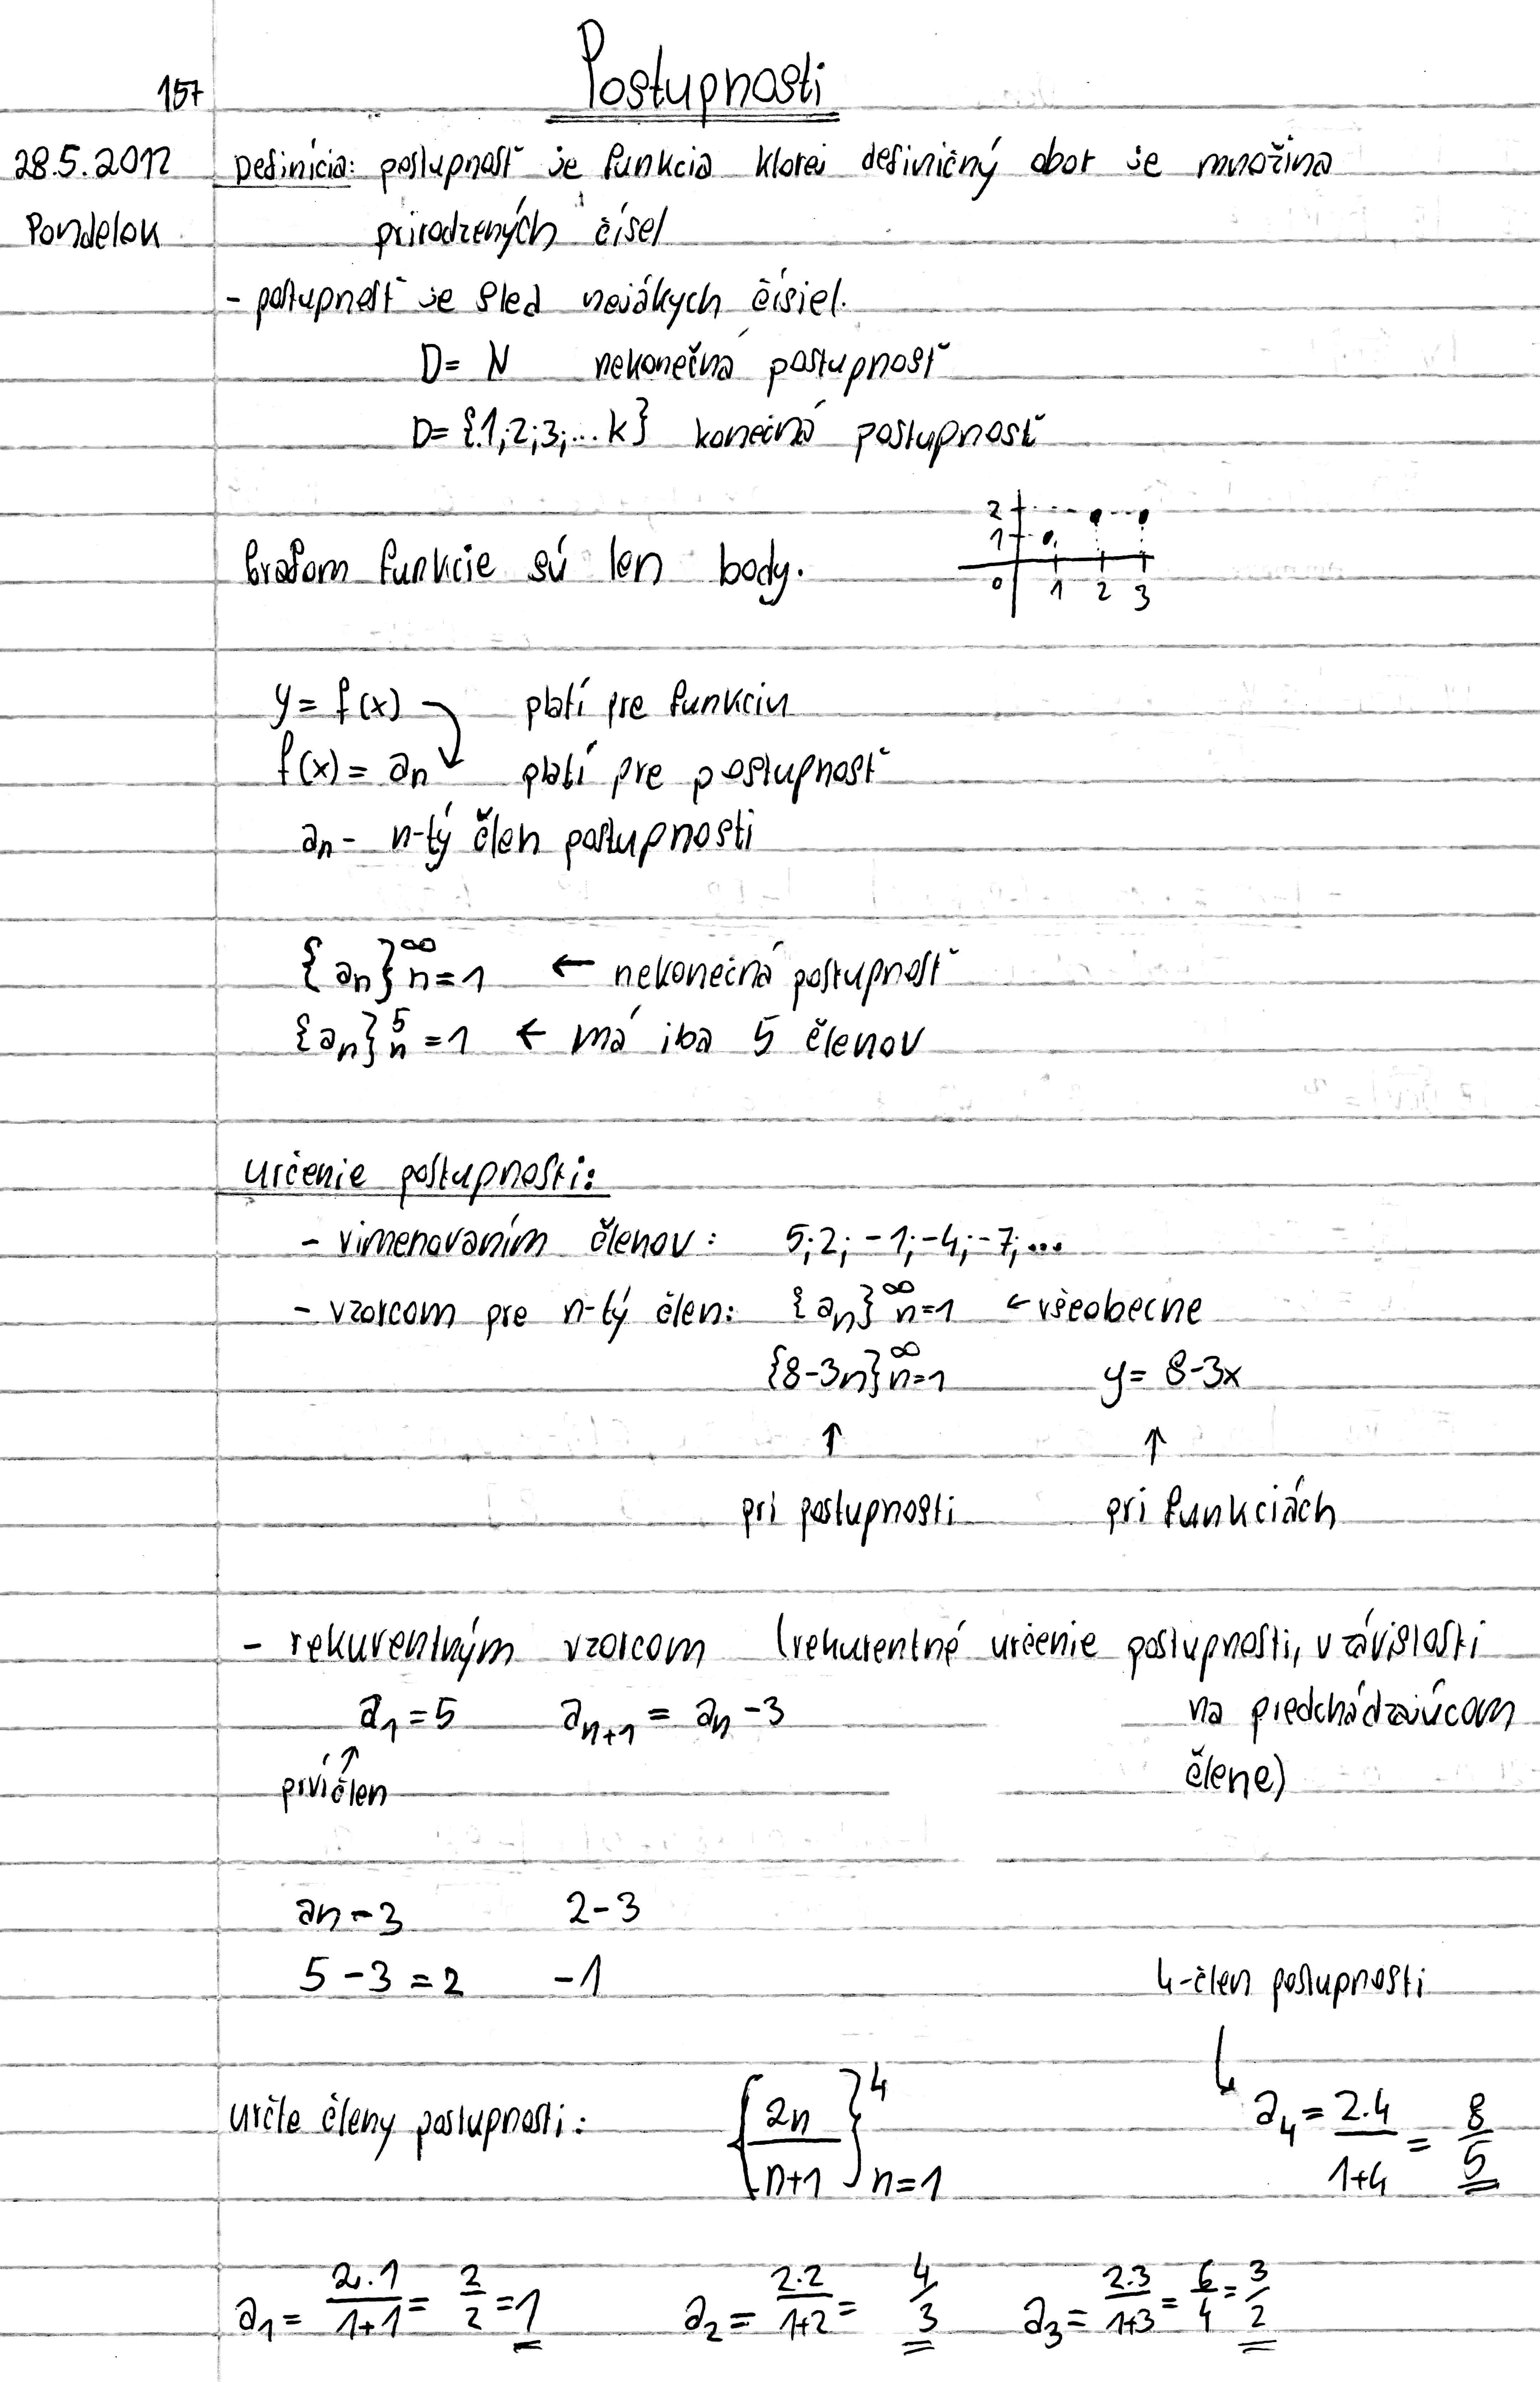 Postupnosti
157
28.5.2012 Definícia: postupnosť je funkcia ktorej definičný obor je množina
Pondelok prirodzených čísel
- postupnosť je sled nejákych čísiel.
D= N nekonečná postupnosť
D= {1;2;3;...k} konečná postupnosť
Grafom funkcie sú len body.
2
1
0 1 2 3
y = f(x) platí pre funkciu
f(x) = an platí pre postupnosť
an - n-tý člen postupnosti
{an}∞ n=1 ← nekonečná postupnosť
{an}5 n=1 ← má iba 5 členov
Určenie postupnosti:
- vimenovaním členov: 5;2;-1;-4;-7;...
- vzorcom pre n-tý člen: {an}∞ n=1 ← všeobecne
{8-3n}∞ n=1 y= 8-3x
↑ ↑
pri postupnosti pri funkciách
- rekurentným vzorcom (rekurentné určenie postupnosti, v závislosti
a1=5 an+1 = an -3 na predchádzajúcom
↑ člene)
prví člen
an-3 2-3
5-3=2 -1
4-člen postupnosti
Určte členy postupnosti: {2n/n+1}4 n=1 a4 = 2.4/1+4 = 8/5
a1 = 2.1/1+1 = 2/2 = 1 a2 = 2.2/1+2 = 4/3 a3 = 2.3/1+3 = 6/4 = 3/2